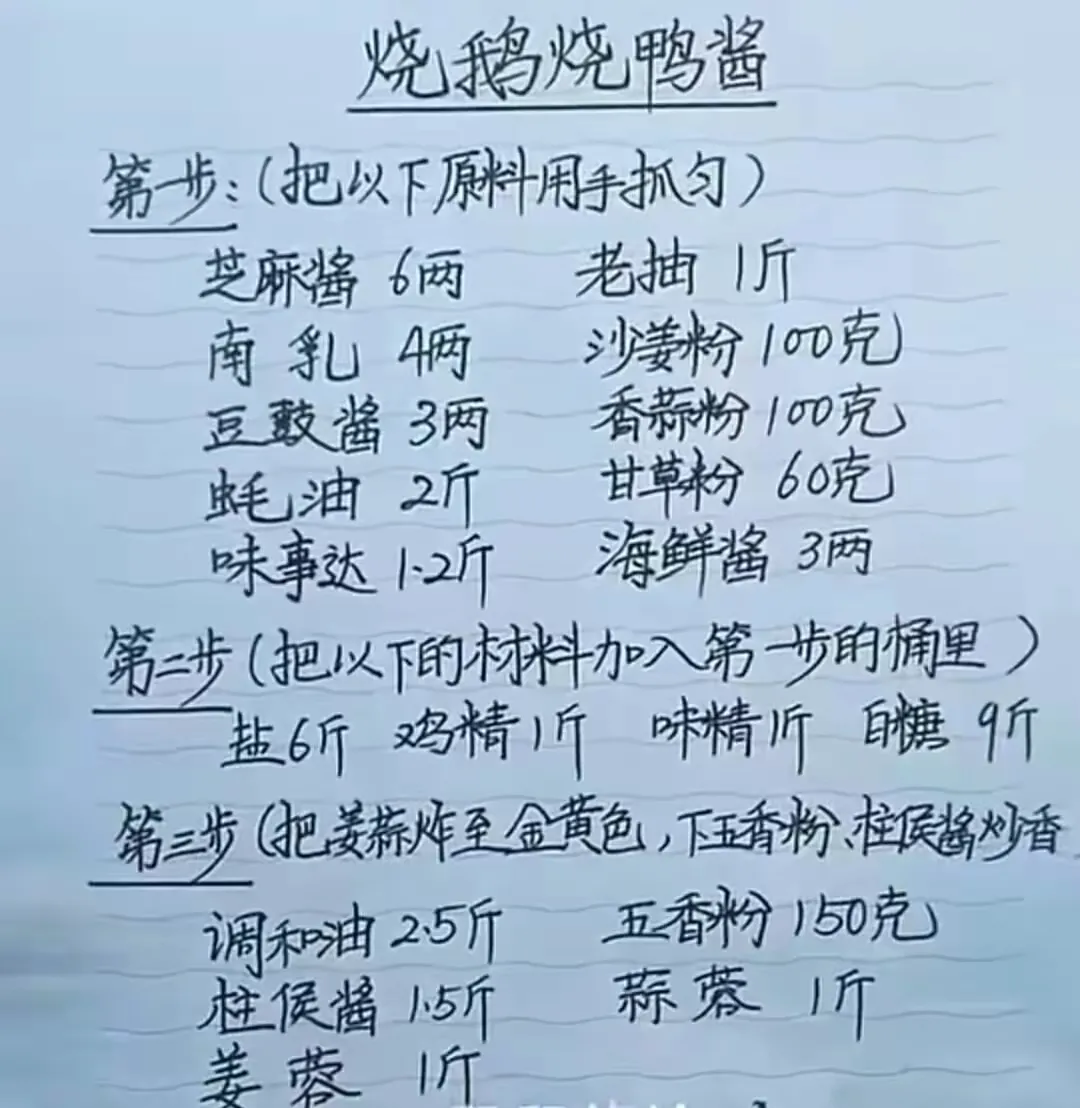 烧鹅烧鸭酱
第一步:(把以下原料用手抓匀)
芝麻酱 6两 老抽 1斤
南乳 4两 沙姜粉 100克
豆鼓酱 3两 香蒜粉 100克
蚝油 2斤 甘草粉 60克
味事达 1.2斤 海鲜酱 3两
第二步(把以下的材料加入第一步的桶里)
盐6斤 鸡精1斤 味精1斤 白糖 9斤
第三步(把姜蒜炸至金黄色,下五香粉、柱侯酱炒香
调和油 2.5斤 五香粉 150克
柱侯酱 1.5斤 蒜蓉 1斤
姜蓉 1斤